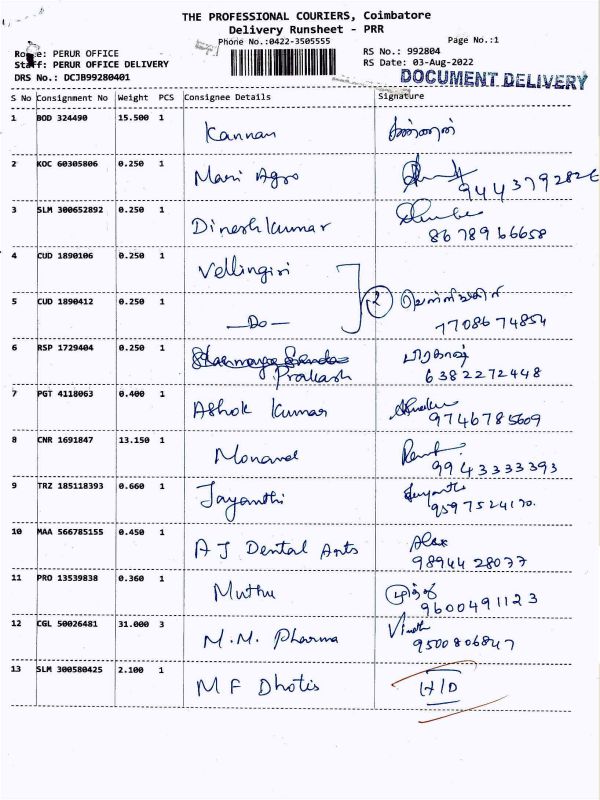 THE PROFESSIONAL COURIERS, Coimbatore
Delivery Runsheet - PRR
Phone No.:0422-3505555
Page No.:1
Route: PERUR OFFICE
RS No.: 992804
Staff: PERUR OFFICE DELIVERY
RS Date: 03-Aug-2022
DRS No.: DCJB99280401
DOCUMENT DELIVERY
S No Consignment No Weight PCS Consignee Details Signature
1 BOD 324490 15.500 1 Kannan
2 KOC 60305806 0.250 1 Mari Agro
3 SLM 300652892 0.250 1 Dineshkumar
8678966658
4 CUD 1890106 0.250 1 Vellingiri
2
5 CUD 1890412 0.250 1 -Do-
7708674854
6 RSP 1729404 0.250 1 Prakash
6382272448
7 PGT 4118063 0.400 1 Ashok Kumar
9746785609
8 CNR 1691847 13.150 1
9943333393
9 TRZ 185118393 0.660 1 Jayanthi
9597524170.
10 MAA 566785155 0.450 1 A J Dental Arts Alex
9894428077
11 PRO 13539838 0.360 1 Muthu
9600491123
12 CGL 50026481 31.000 3 M.M. Pharma Vinoth
9500806847
13 SLM 300580425 2.100 1 M F Dhotis H/D